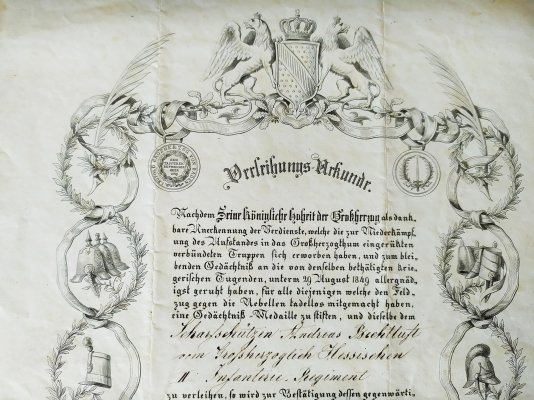 Verleihungs Urkunde.
Nachdem Seine Königliche Hoheit der Großherzog als dank-
bare Anerkennung der Verdienste, welche die zur Niederkämpf-
ung des Aufstandes in das Großherzogthum eingerükten
verbündeten Truppen sich erworben haben, und zum blei-
benden Gedächtniß an die von denselben bethätigten krie-
gerischen Tugenden, unterm 29 August 1849 allergnäd-
igst geruht haben, für alle diejenigen welche den Feld-
zug gegen die Rebellen tadellos mitgemacht haben,
eine Gedächtniß-Medaille zu stiften, und dieselbe dem
Scharfschützen Andreas
vom Großherzoglich Hessischen
II Infanterie-Regiment
zu verleihen, so wird zur Bestätigung dessen gegenwärti-